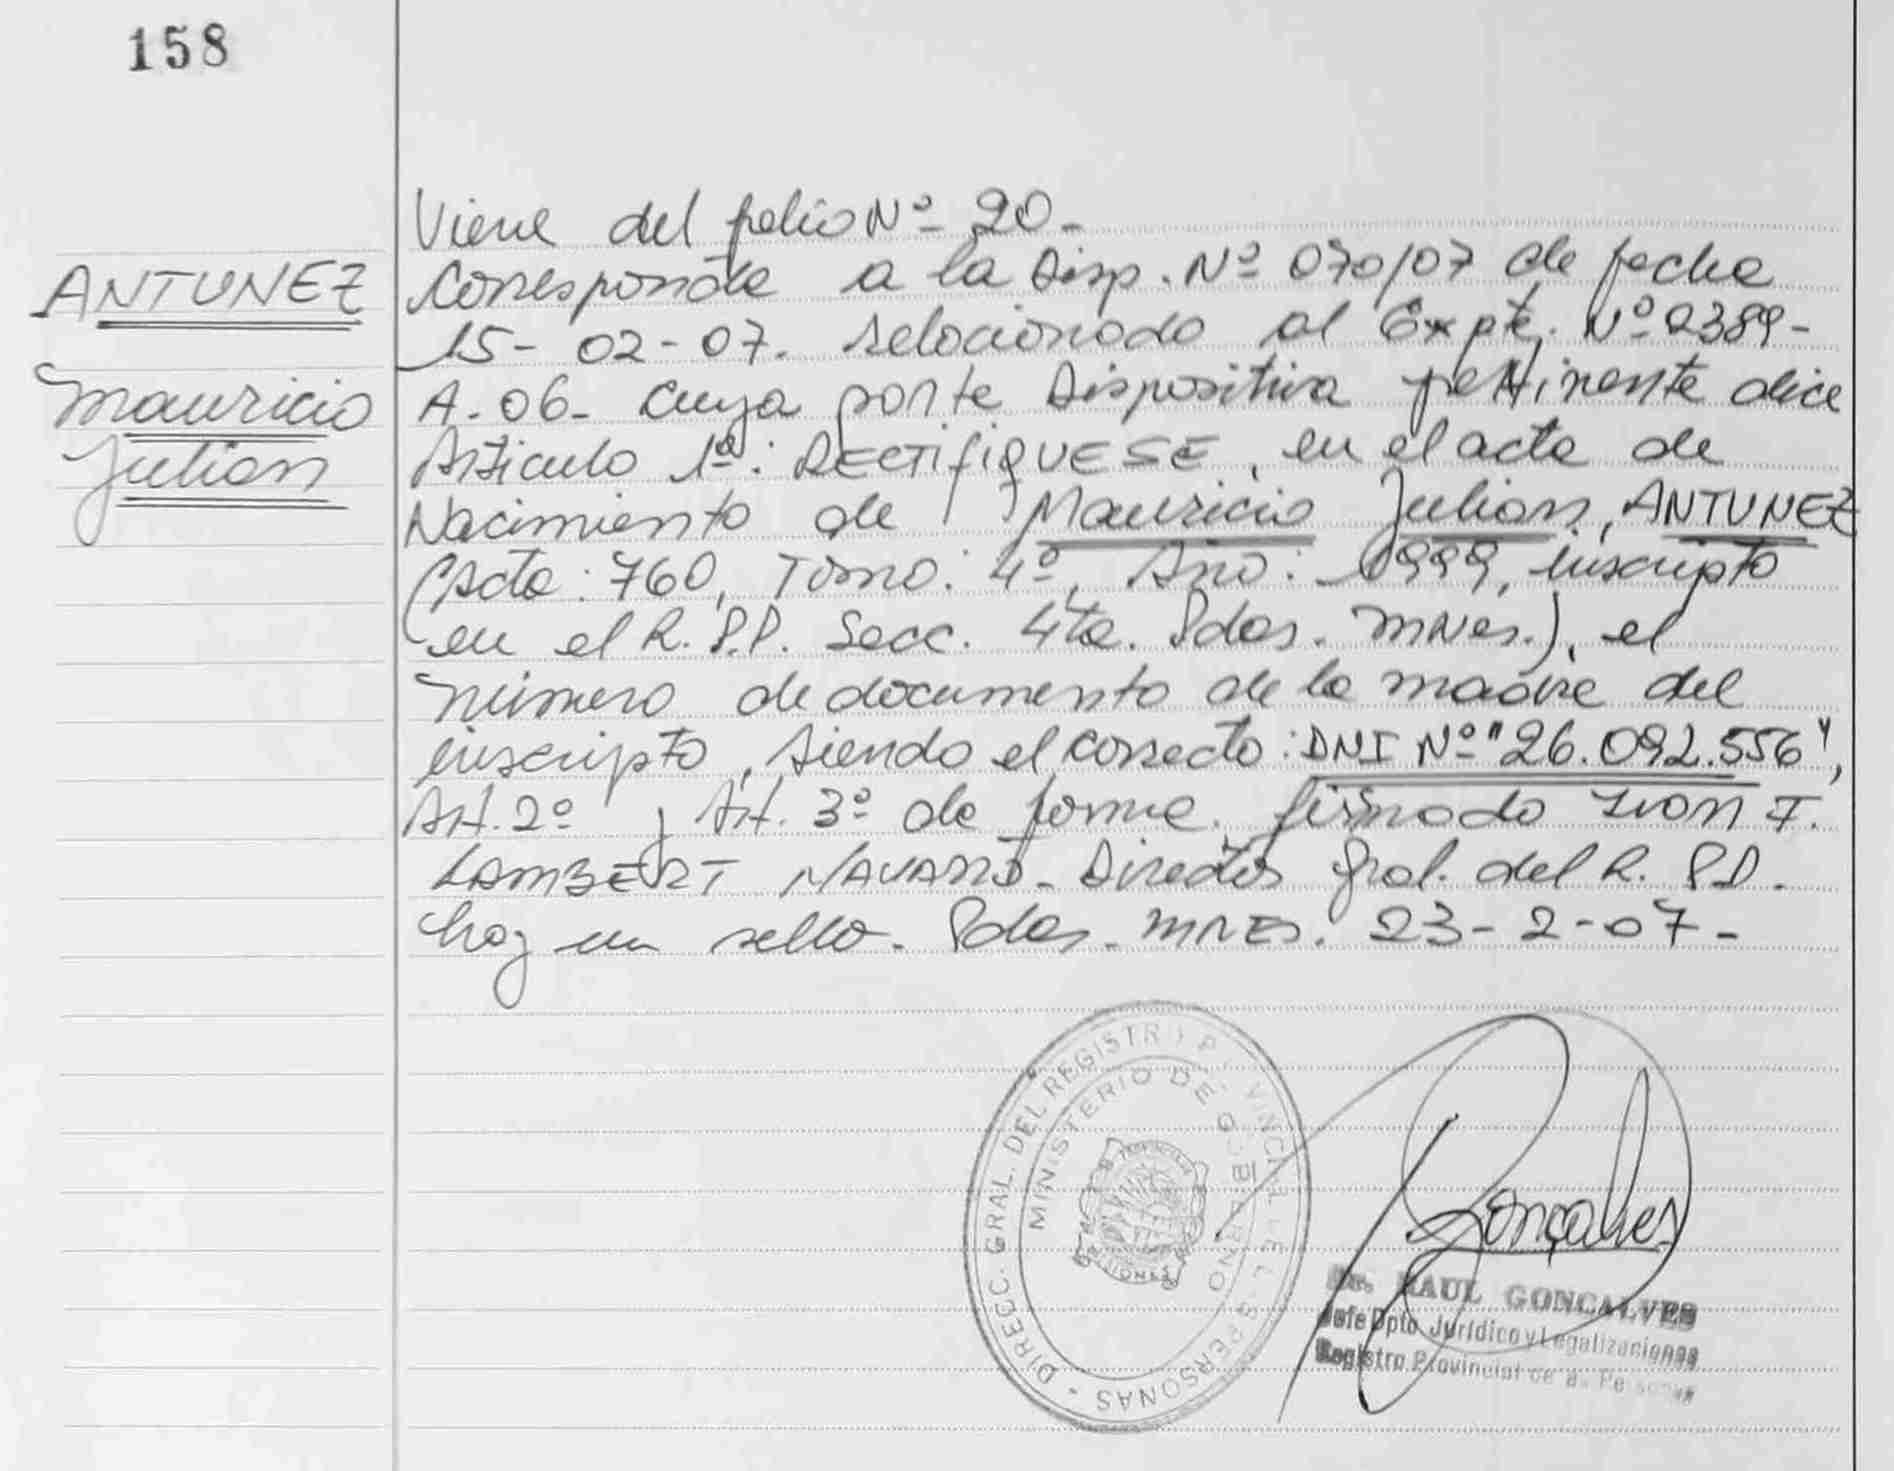 158
ANTUNEZ
Mauricio
Julian
Viene del folio Nº 90-
Corresponde a la Disp. Nº 070/07 de fecha
15-02-07. relacionado al Expte. Nº 2389-
A-06- cuya parte Dispositiva pertinente dice
Articulo 1º: RECTIFIQUESE, en el acta de
Nacimiento de Mauricio Julian, ANTUNEZ
(Acta: 760, Tomo: 4º, Año: 1999, inscripto
en el R.P.P. Secc. 4ta. Pdas. MNes.), el
número de documento de la madre del
inscripto, siendo el correcto: DNI Nº "26.092.556",
Art. 2º y Art. 3º de forma. firmado Ivan I.
LAMBERT NAVARRO- Director Gral. del R. P.P.
hay un sello. Pdas. MNES. 23-2-07-
DIRECC. GRAL. DEL REGISTRO PROVINCIAL DE LAS PERSONAS -
MINISTERIO DE GOBIERNO
MISIONES
Goncalves
Dr. RAUL GONCALVES
Jefe Dpto Jurídico y Legalizaciones
Registro Provincial de las Personas